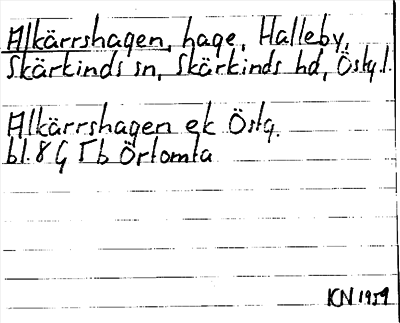 Alkärrshagen, hage, Halleby,
Skärkinds sn, Skärkinds hd, Östg.l.
Alkärrshagen ek Östg.
bl. 8 G Γb Örtomta
KN 1959